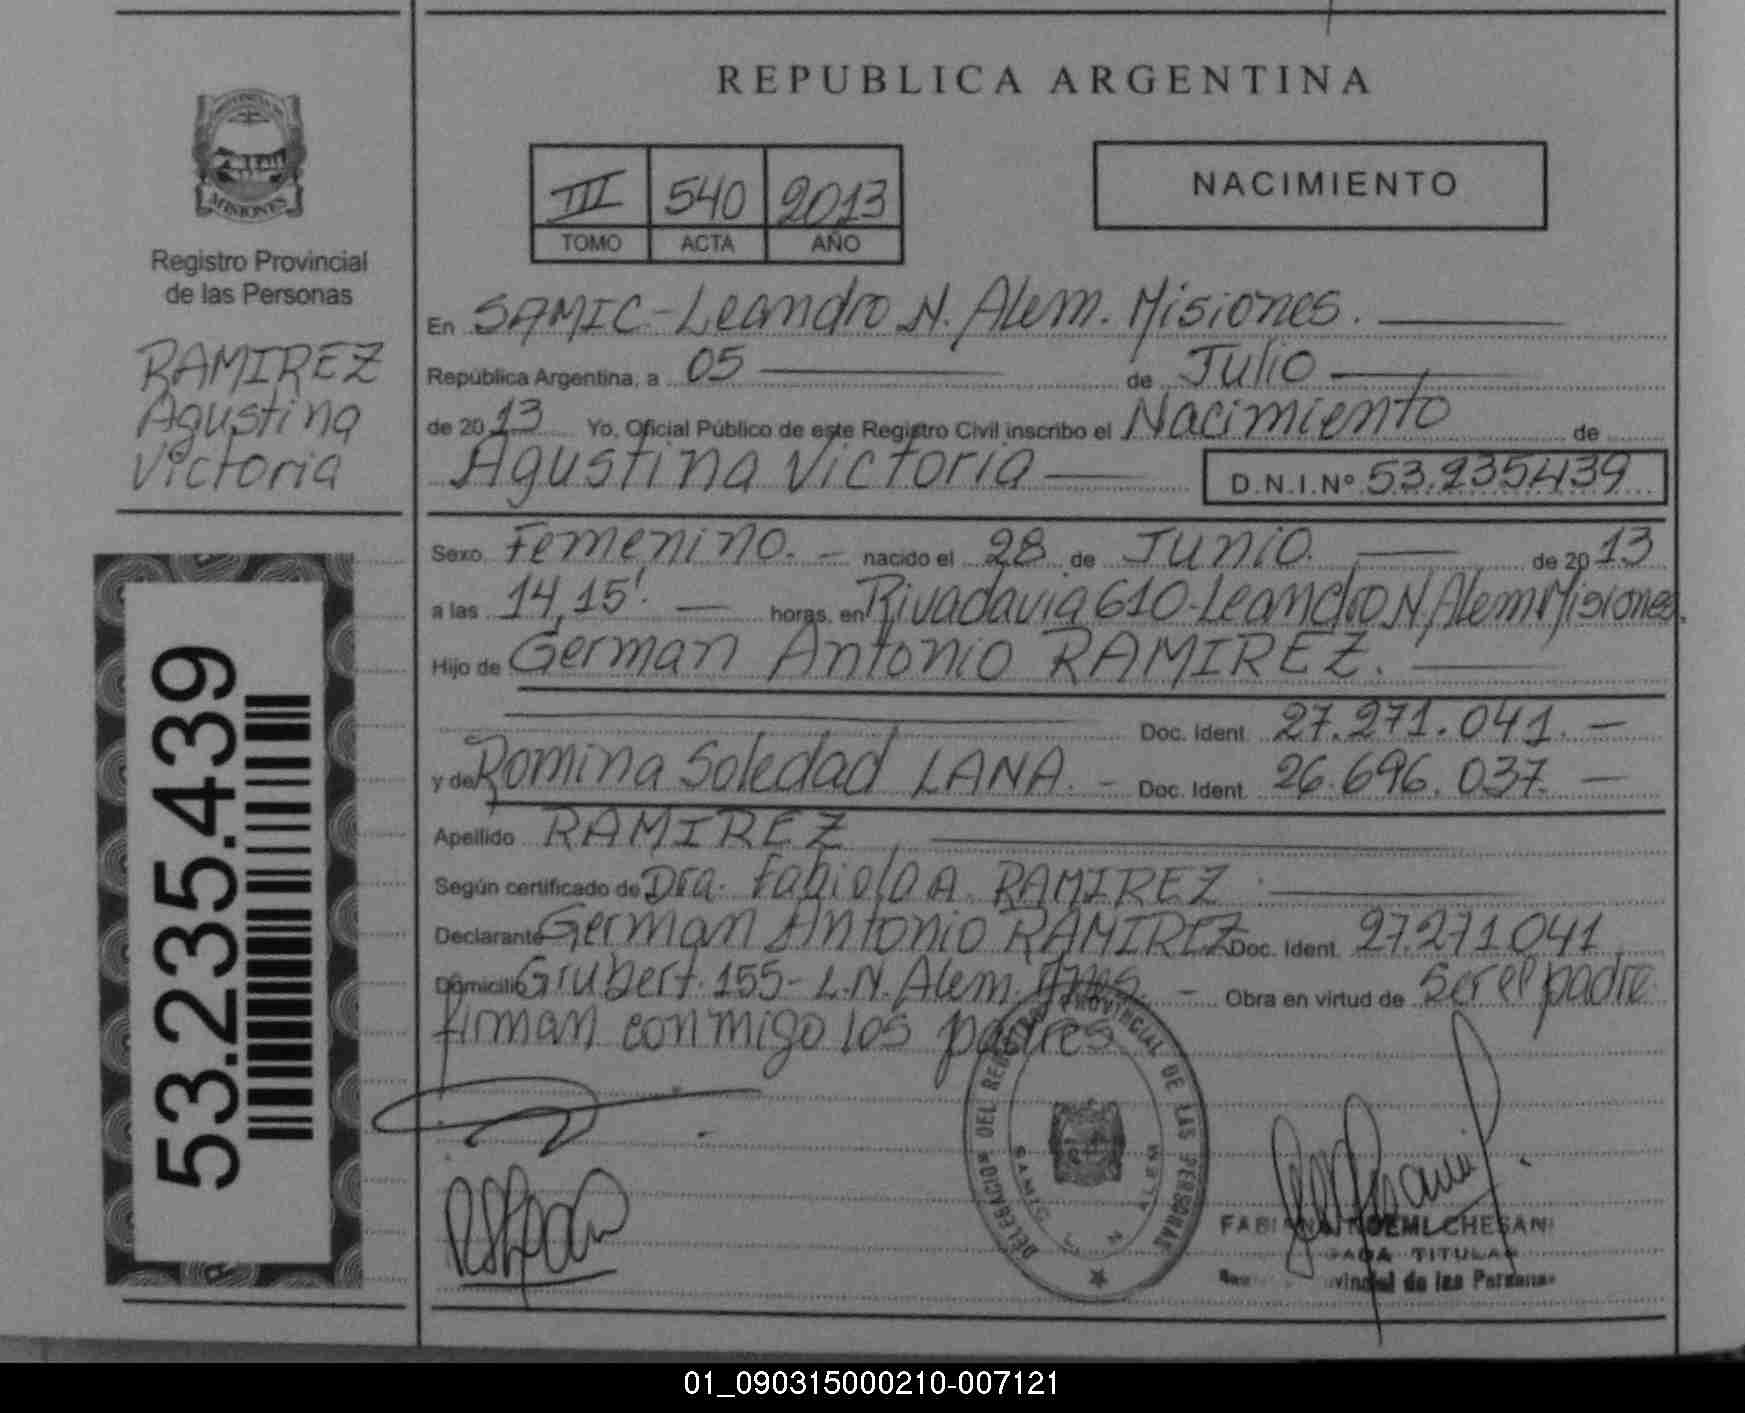 REPUBLICA ARGENTINA
PROVINCIA DE
MISIONES
Registro Provincial
de las Personas
RAMIREZ
Agustina
Victoria
53.235.439
III 540 2013
TOMO ACTA AÑO
NACIMIENTO
En SAMIC-Leandro N. Alem. Misiones.
República Argentina, a 05 de Julio
de 2013 Yo, Oficial Público de este Registro Civil inscribo el Nacimiento de
Agustina Victoria D.N.I.Nº 53.235439
Sexo Femenino. nacido el 28 de Junio. de 2013
a las 14,15'. horas, en Rivadavia 610-Leandro N. Alem Misiones.
Hijo de German Antonio RAMIREZ.
Doc. Ident. 27.271.041.
y de Romina Soledad LANA. Doc. Ident. 26.696.037.
Apellido RAMIREZ
Según certificado de Dra. Fabiola A. RAMIREZ
Declarante German Antonio RAMIREZ Doc. Ident. 27.271.041
Domicilio Grubert. 155- L.N. Alem. Obra en virtud de ser el padre
firman conmigo los padres
DELEGACION DEL REGISTRO PROVINCIAL DE LAS PERSONAS
SAMIC L N ALEM
FABIANA NOEMI CHESANI
TITULAR
de las Personas
01_090315000210-007121